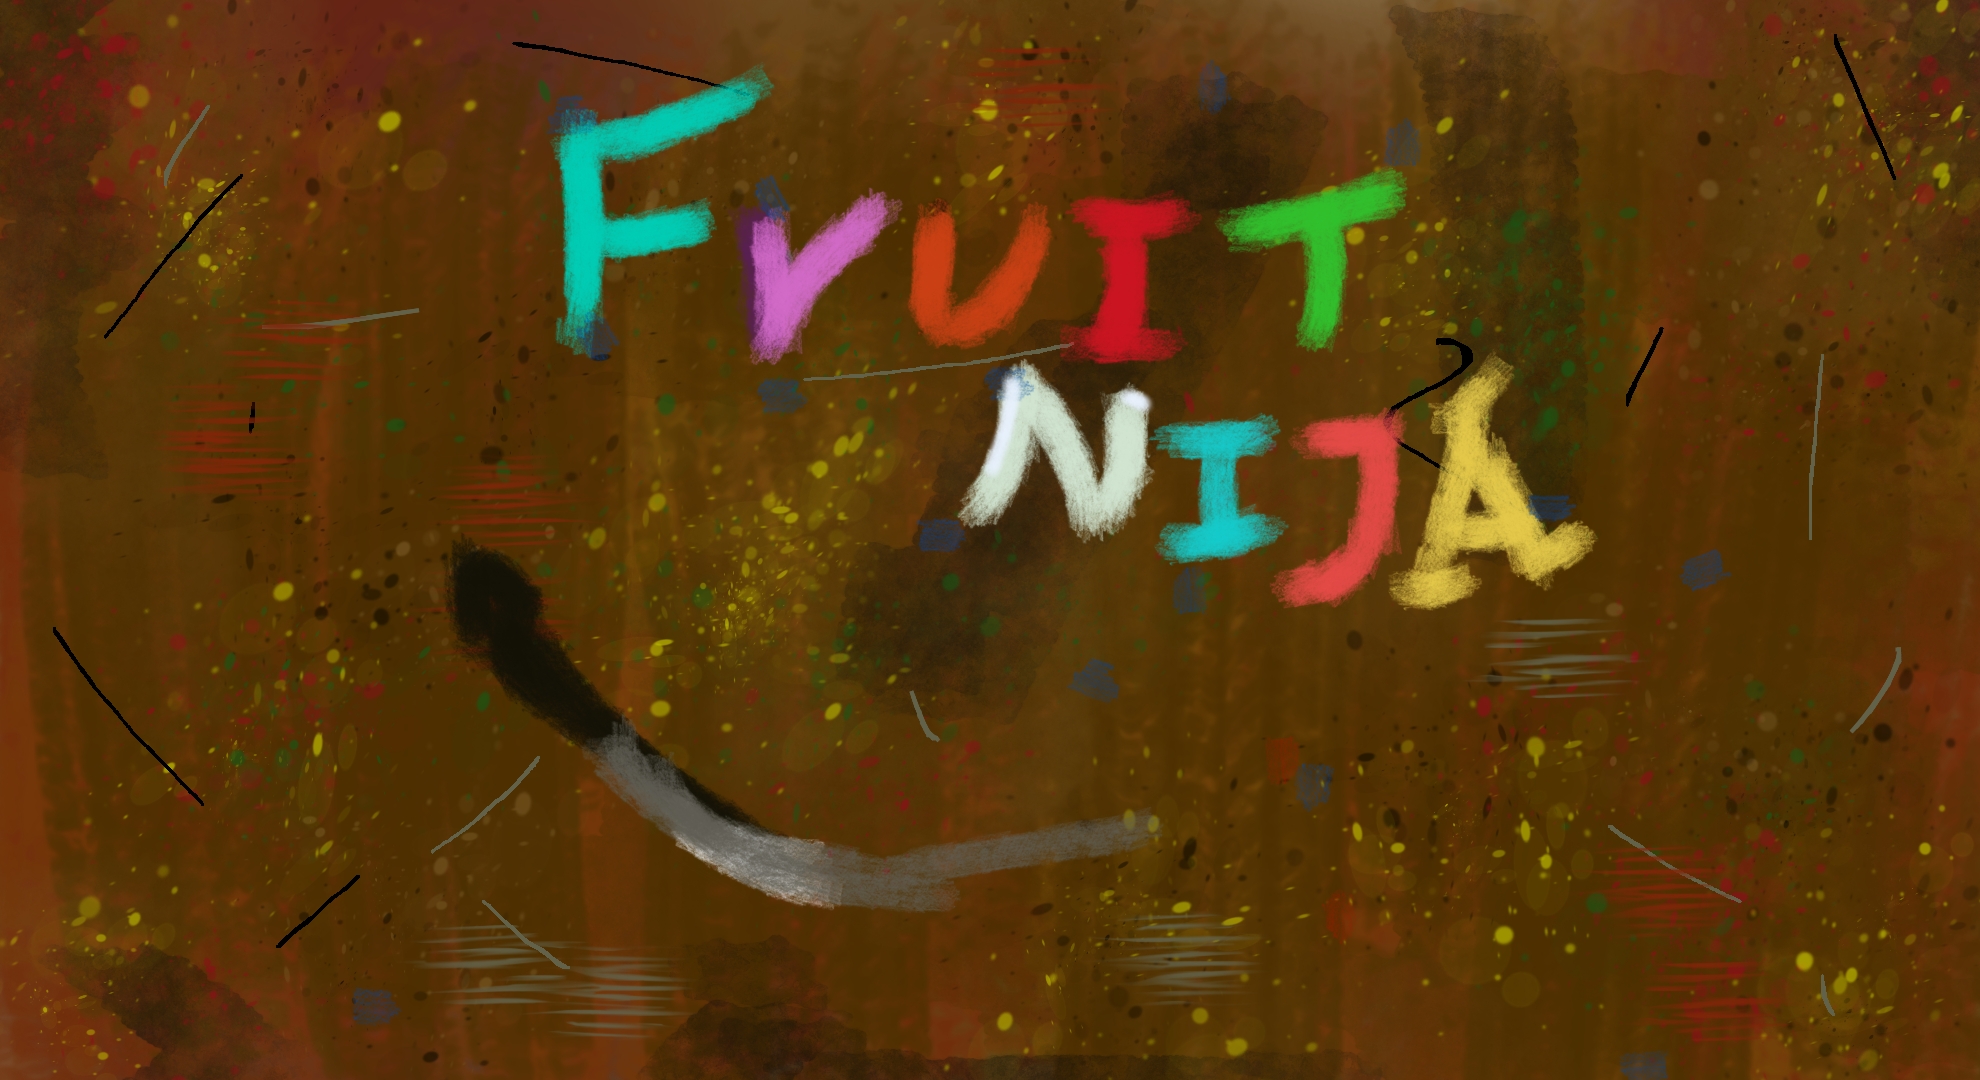 FrUIT
NIJA